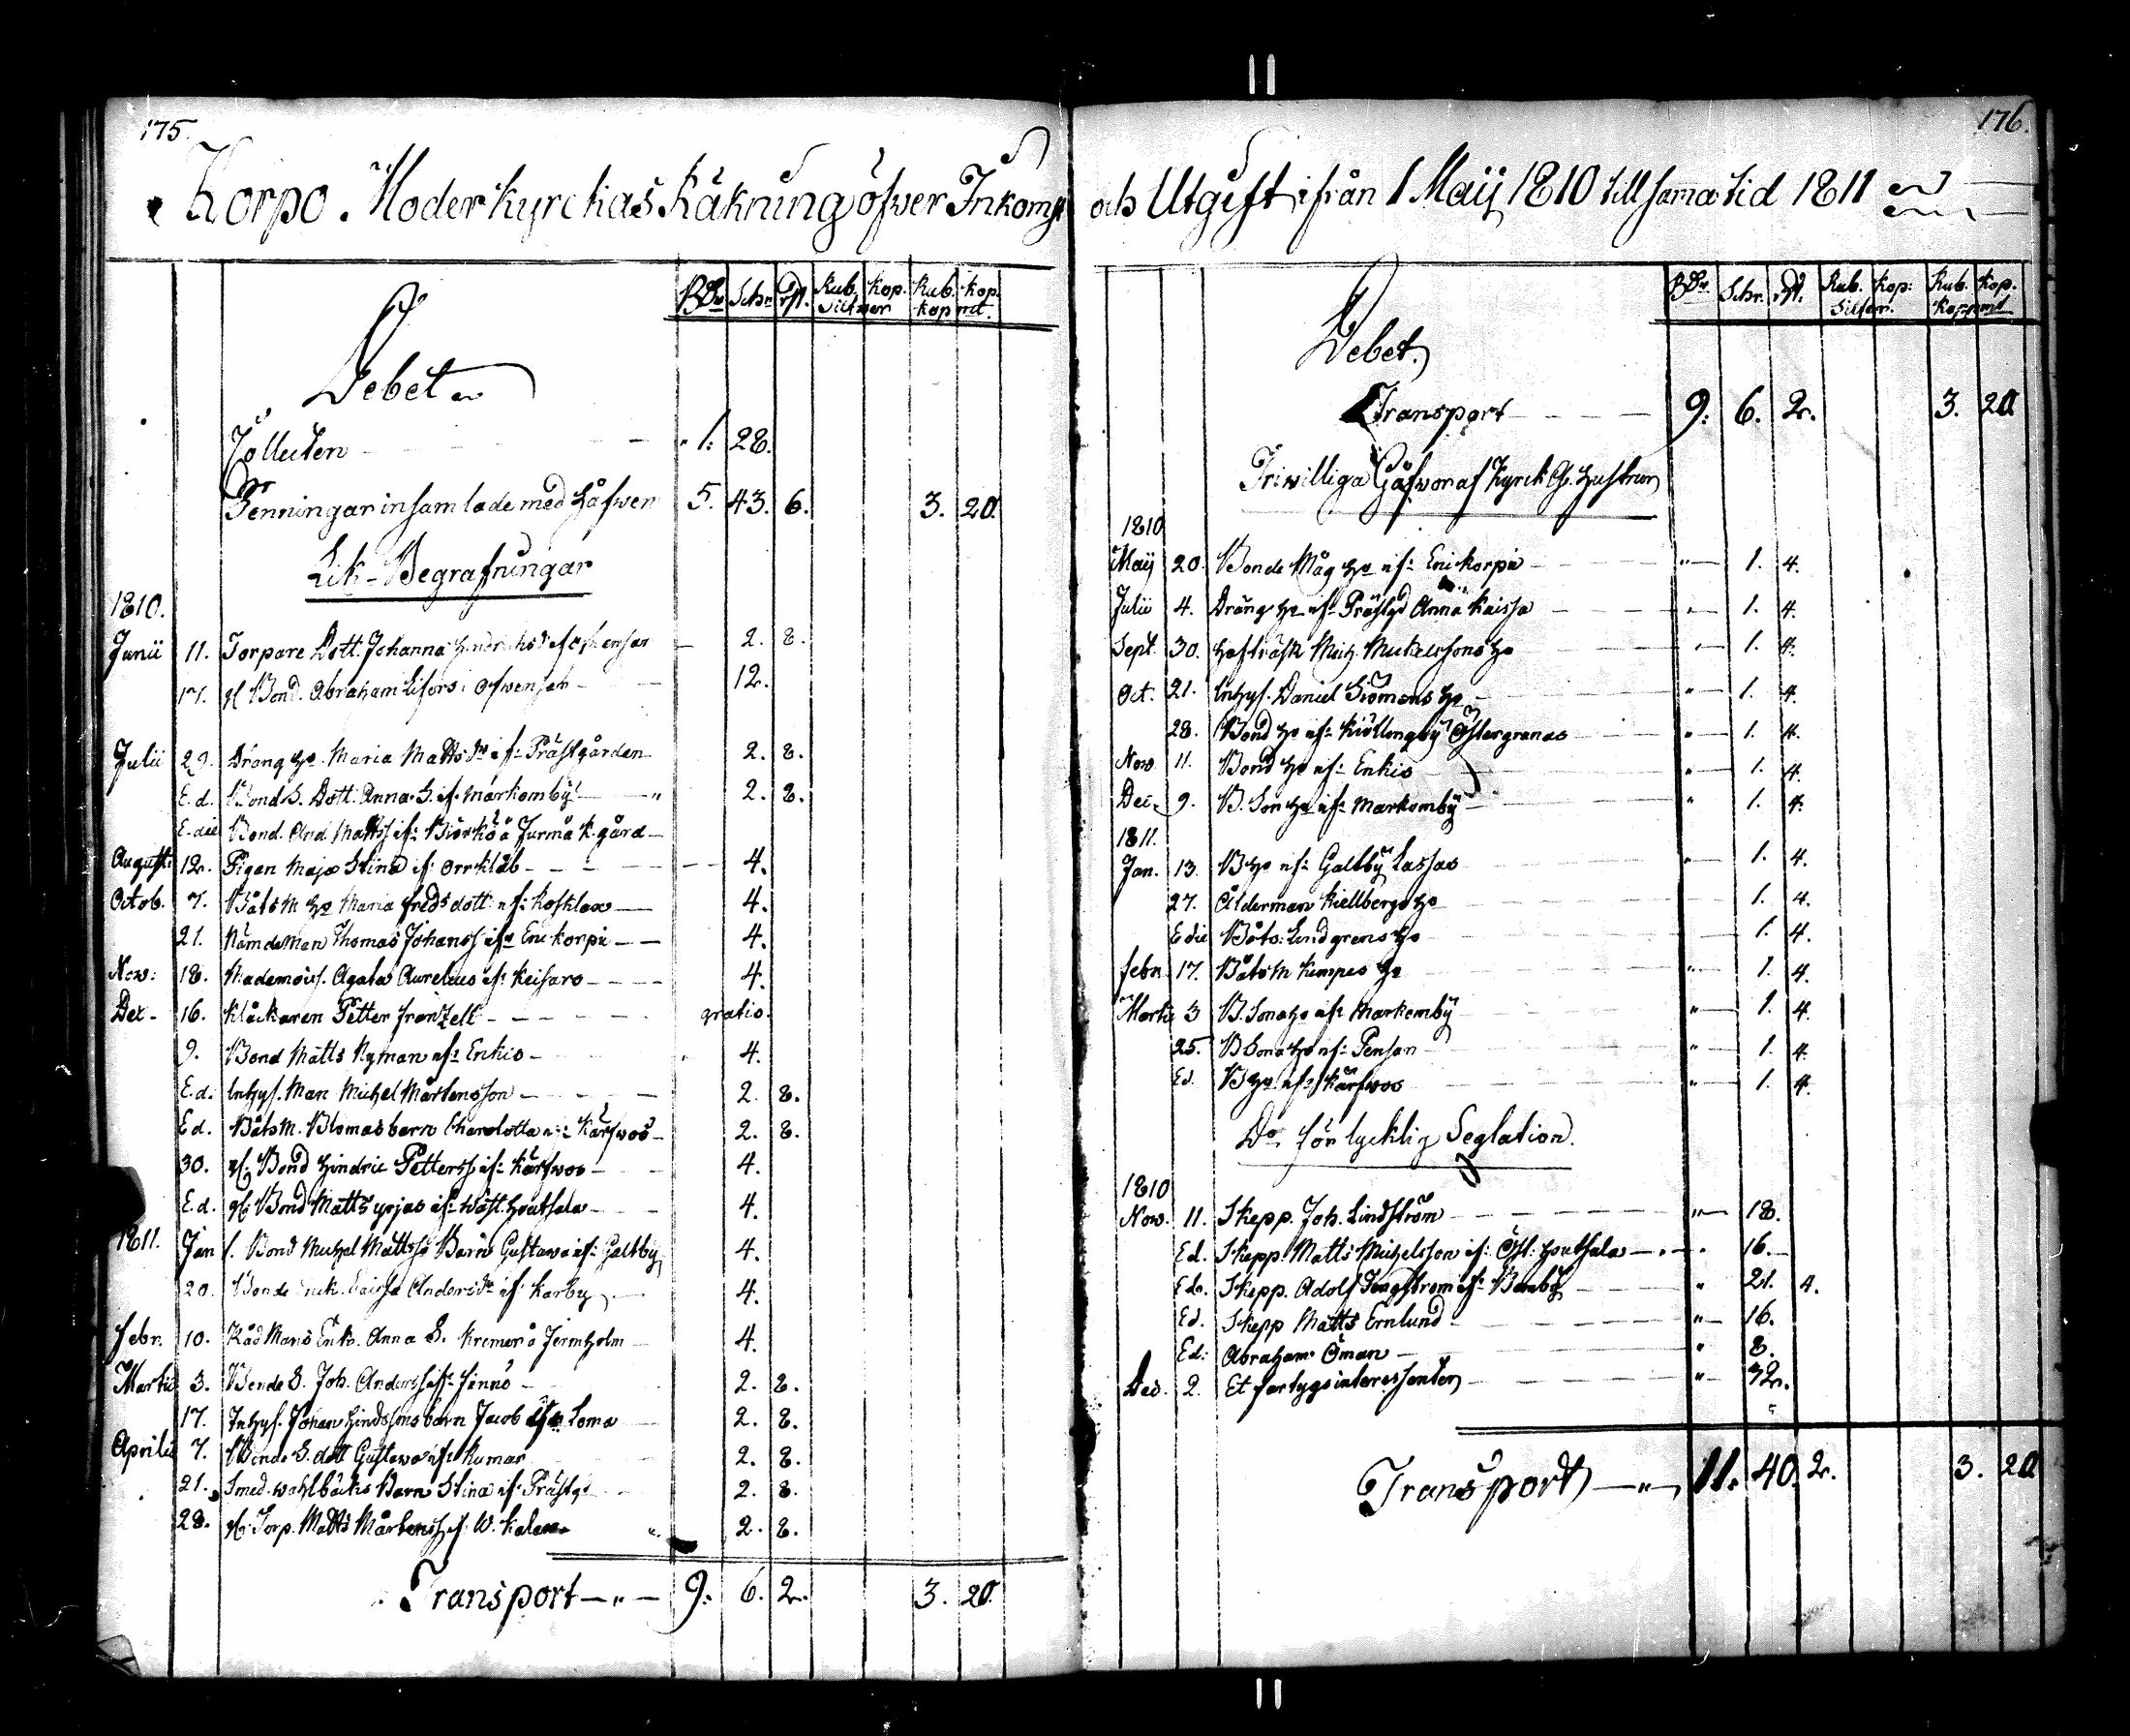 175.
Korpo Moderkyrckas Räkning öfwer Inkomst
RDr Schr rst. Rub. kop. Rub. kop.
Silfwer kopmt.
Debet
Jolluten 1. 28.
Penningar insamlade med Håfwen 5. 43. 6. 3. 20.
Lik-Begrafningar
1810.
Junii 11. Torpare Dott. Johanna 2. 8.
17. Bond. Abraham 12.
Julii 29. Dräng Ho Maria Mattsdr ifr Prästgården 2. 8.
E.d. Bond S. Dott. Anna S. if. Markomby 2. 8.
E.die Bond. And. Mattss if: Biörkö å Jurmo K. gård
August. 12. Pigan Maja Stina if: Orrkläb 4.
Octob. 7. Båtsm Ho Maria Freds dott. if: Kosklax 4.
21. Nämdeman Thomas Johanss ifr Erickorpi 4.
Nov: 18. Mademois. Agata Aurelius if: Keisars 4.
Dec. 16. Klåckaren Petter Frantzell gratis.
9. Bond Matts Nyman ifr Enkis 4.
E.d. Inhys. Man Michel Mårtensson 2. 8.
E.d. Båtsm. Blomas barn Charlotta if: Kärfwos 2. 8.
30. gl. Bond Hindric Petterss if: Kärfwos 4.
E.d. gl. Bond Matts Yrjas if: Wäst. Houtsala 4.
1811. Jan 1. Bond Michel Mattss Barn Gustava if: Galtby 4.
20. Bonde Enk. Caisa Andersdr if: Karby 4.
Febr. 10. Råd Mans Enk. Anna S. Kremer å Jermholm 4.
Martii 3. Bonde S. Joh. Anderss ifr Finnö 2. 8.
17. Inhys. Johan Hindssons barn Jacob ifr Loma 2. 8.
Aprilis 7. Bonde S. dott Gustava if: Kumar 2. 8.
21. Smed. Wahlbäcks Barn Stina if: Prästg. 2. 8.
28. gl. Torp. Matts Mårtenss if: W. Kalax 2. 8.
Transport 9. 6. 2. 3. 20.
176.
och Utgift ifrån 1 Maij 1810 till sama tid 1811
RDr. Schr. rst. Rub. kop: Rub. kop.
Silfwer. Kopmt
Debet
Transport 9. 6. 2. 3. 20
Friwilliga Gåfwor af Kyrck G. Hustrur
1810
Maij 20. Bonde Måg Ho if: Erickorpi 1. 4.
Julii 4. Dräng Ho if: Prästgd Anna Kaisa 1. 4.
Sept. 30. Mich. Mickelssons Ho 1. 4.
Oct. 21. Inhys. Daniel Simons Ho 1. 4.
28. Bond Ho if: Kiöllingby Östergranas 1. 4.
Nov. 11. Bond Ho if: Enkis 1. 4.
Dec. 9. B. Son Ho if: Markomby 1. 4.
1811.
Jan. 13. B Ho if: Galtby Lassas 1. 4.
27. Ålderman Kiellbergs Ho 1. 4.
Edie Båts: Lindgrens Ho 1. 4.
Febr. 17. Båtsm Kempes Ho 1. 4.
Martii 3 B. Sons Ho if: Markomby 1. 4.
25. B Sons Ho if: Pensar 1. 4.
Ed. B Ho if: Kärfwos 1. 4.
Do för lycklig Seglation.
1810
Nov. 11. Skepp. Joh. Lindström 18.
Ed. Skepp. Matts Michelsson if: Öst. Houtsala 16.
Ed. Skepp. Adolf if: 21. 4.
Ed. Skepp Matts Ernlund 16.
Ed: Abraham Öman 8.
Dec. 2. Et fartygs interessenter 32.
Transport 11. 40. 2. 3. 20